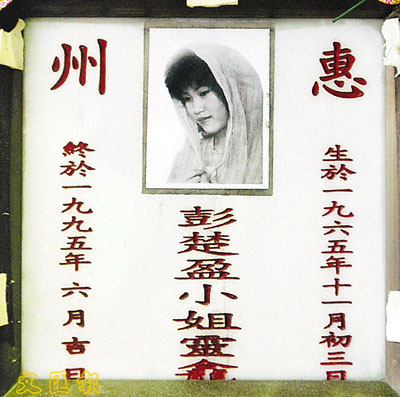 惠州
生於一九六五年十一月初三日
彭楚盈小姐靈龕
終於一九九五年六月吉日
文匯報